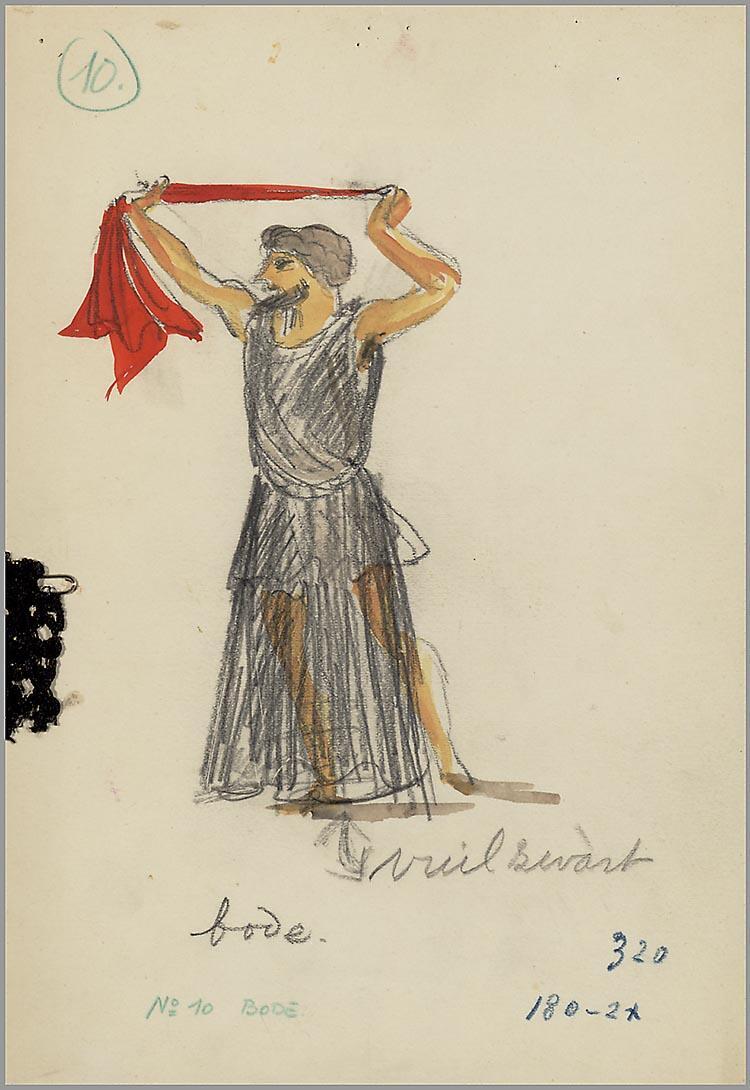 10.
vuil zwart
bode.
320
180-2x
Nº 10 BODE